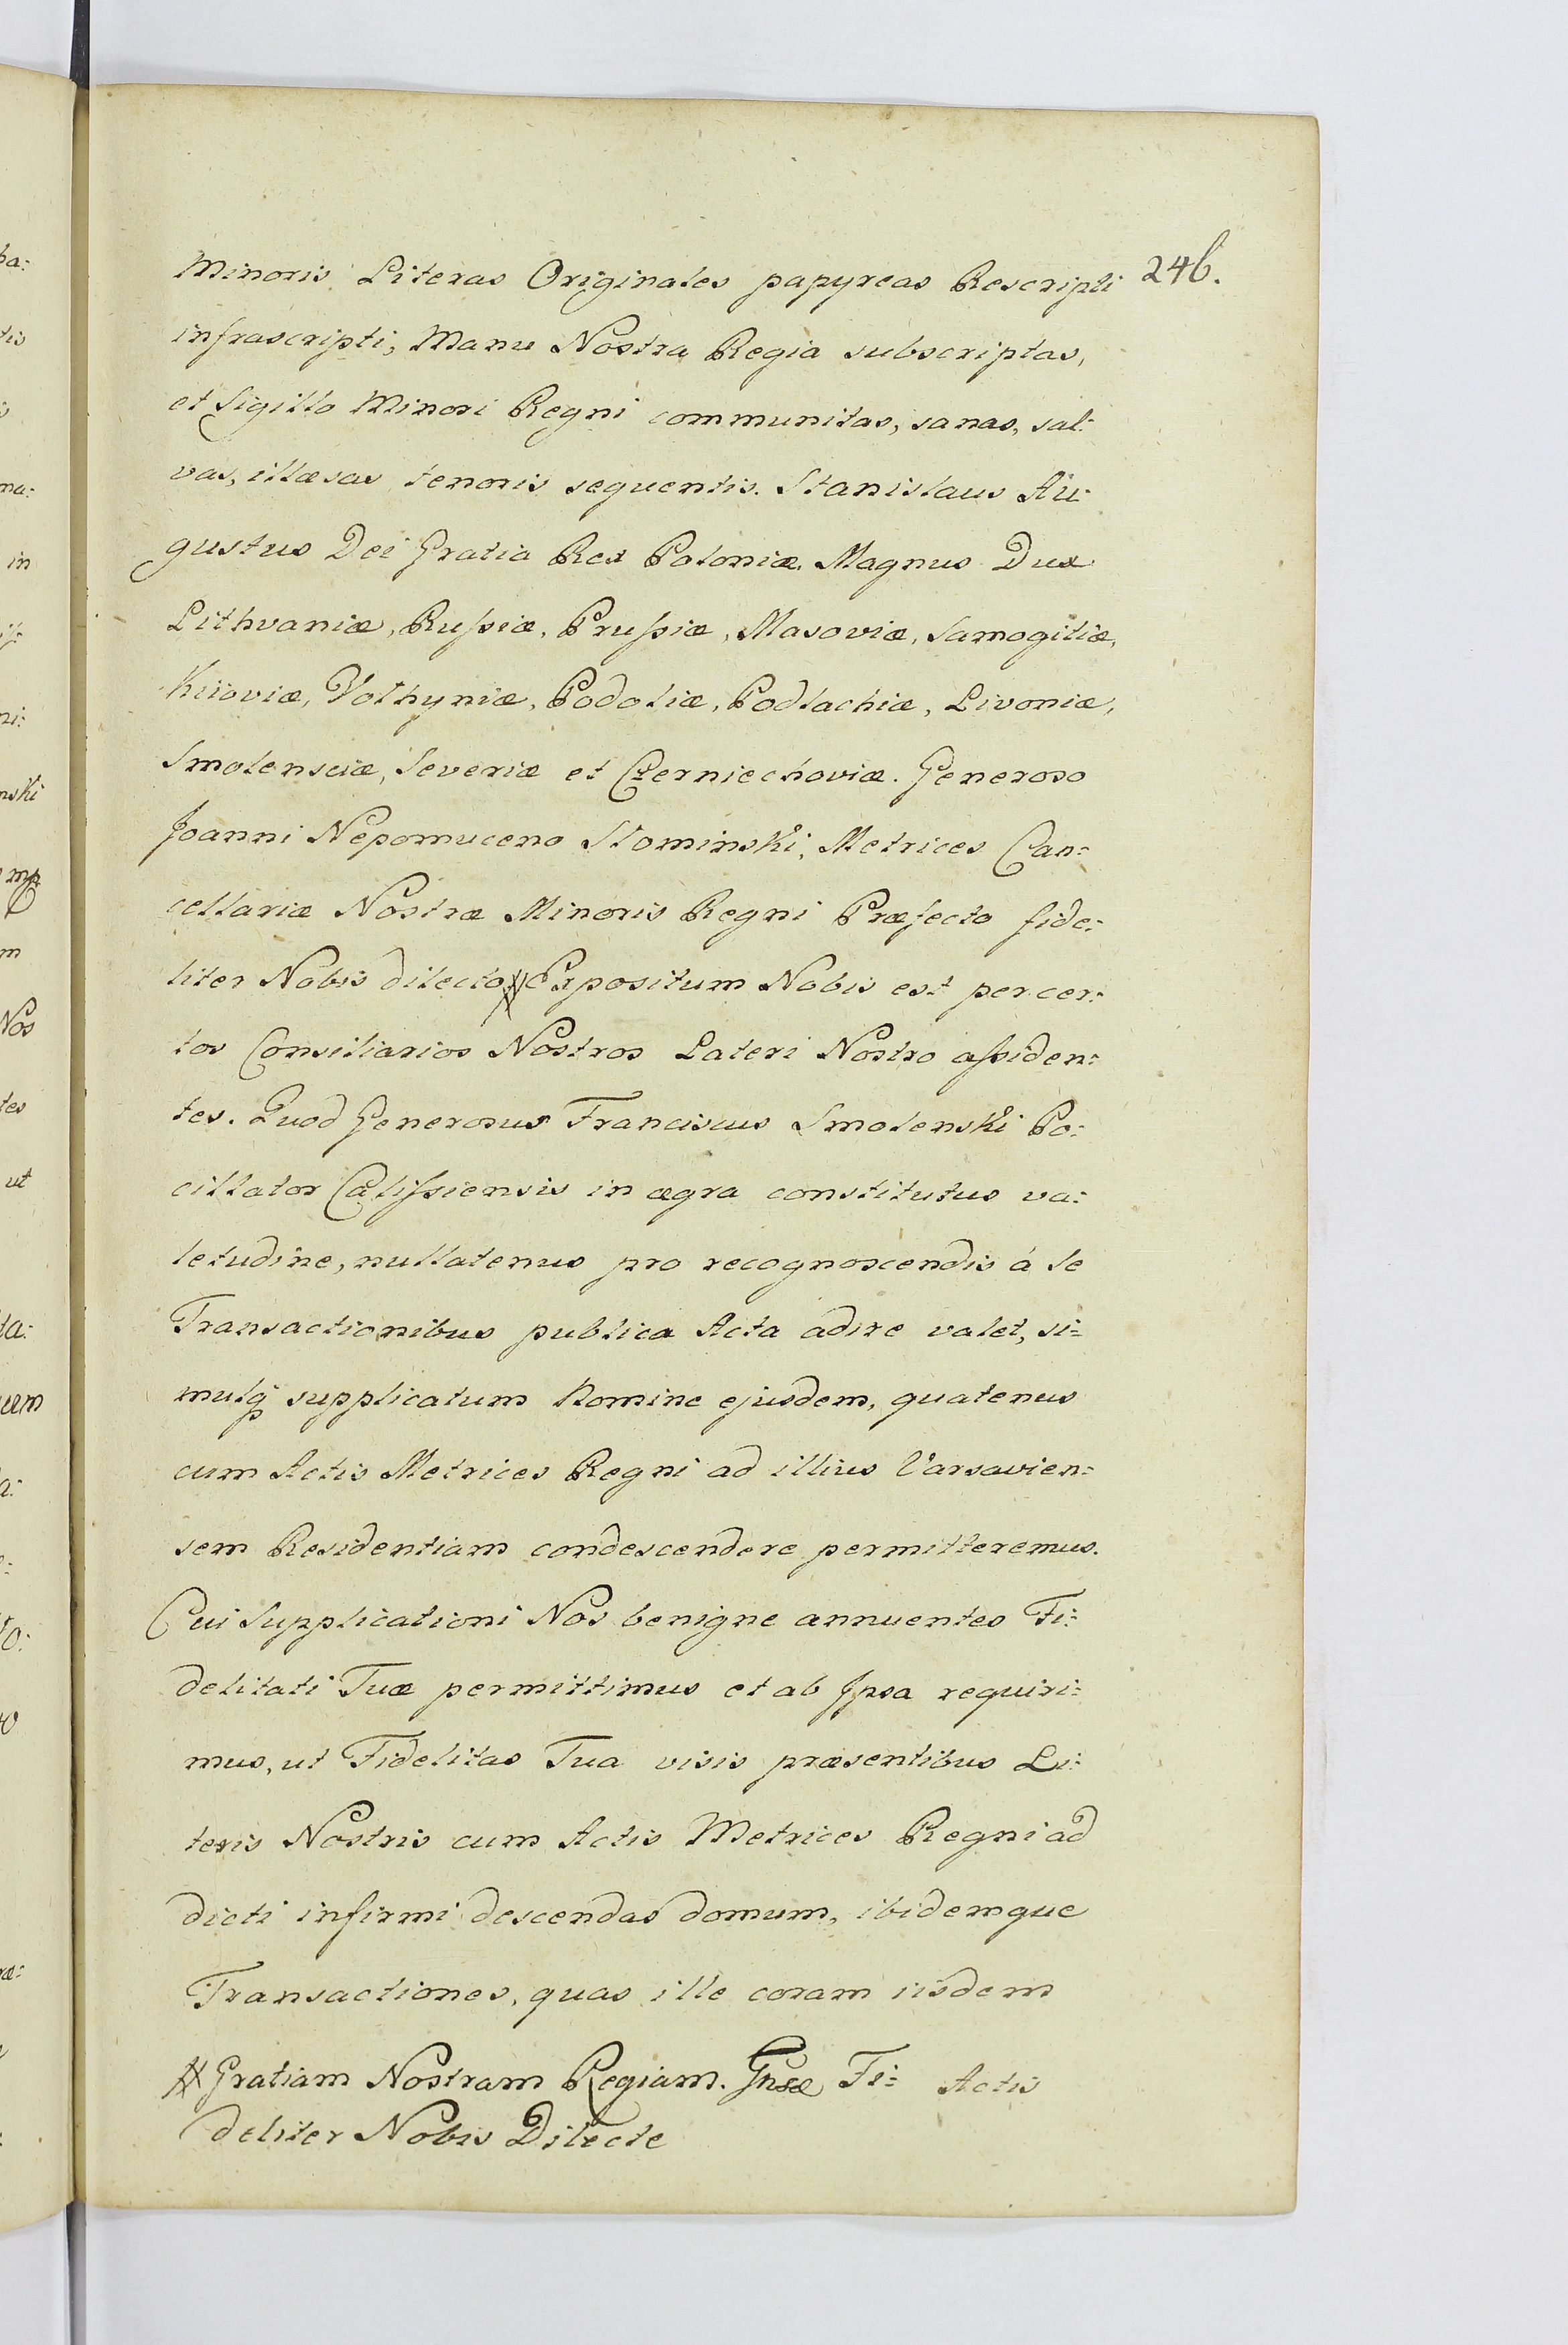 246.
Minoris Literas Originales papyreas Rescripti
infrascripti, Manu Nostra Regia subscriptas,
et Sigillo Minori Regni communitas, sanas, sal:
vas, illæsas tenoris sequentis. Stanislaus Au:
gustus Dei Gratia Rex Poloniæ, Magnus Dux
Lithvaniæ, Russiæ, Prussiæ, Masoviæ, Samogitiæ,
Kiioviæ, Volhyniæ, Podoliæ, Podlachiæ, Livoniæ,
Smolensciæ, Severiæ et Czerniechoviæ. Generoso
Joanni Nepomuceno Słominski, Metrices Can:
cellariæ Nostræ Minoris Regni Præfecto fide:
liter Nobis dilecto # Expositum Nobis est per cer:
tos Consiliarios Nostros Lateri Nostro assiden:
tes. Quod Generosus Franciscus Smolenski Po:
cillator Calissiensis in ægra constitutus va:
letudine, nullatenus pro recognoscendis á se
Transactionibus publica Acta adire valet, si:
mulq supplicatum Nomine ejusdem, quatenus
cum Actis Metrices Regni ad illius Varsavien:
sem Residentiam condescendere permitteremus.
Cui Supplicationi Nos benigne annuentes Fi:
delitati Tuæ permittimus et ab Ipsa requiri:
mus, ut Fidelitas Tua visis præsentibus Li:
teris Nostris cum Actis Metrices Regni ad
dicti infirmi descendas domum, ibidemque
Transactiones, quas ille coram iisdem
Actis
# Gratiam Nostram Regiam. Gnse Fi:
deliter Nobis Dilecte
ba:
tis
ma:
in
ni:
nski
mp
m
Nos
tes
ut
ta:
uem